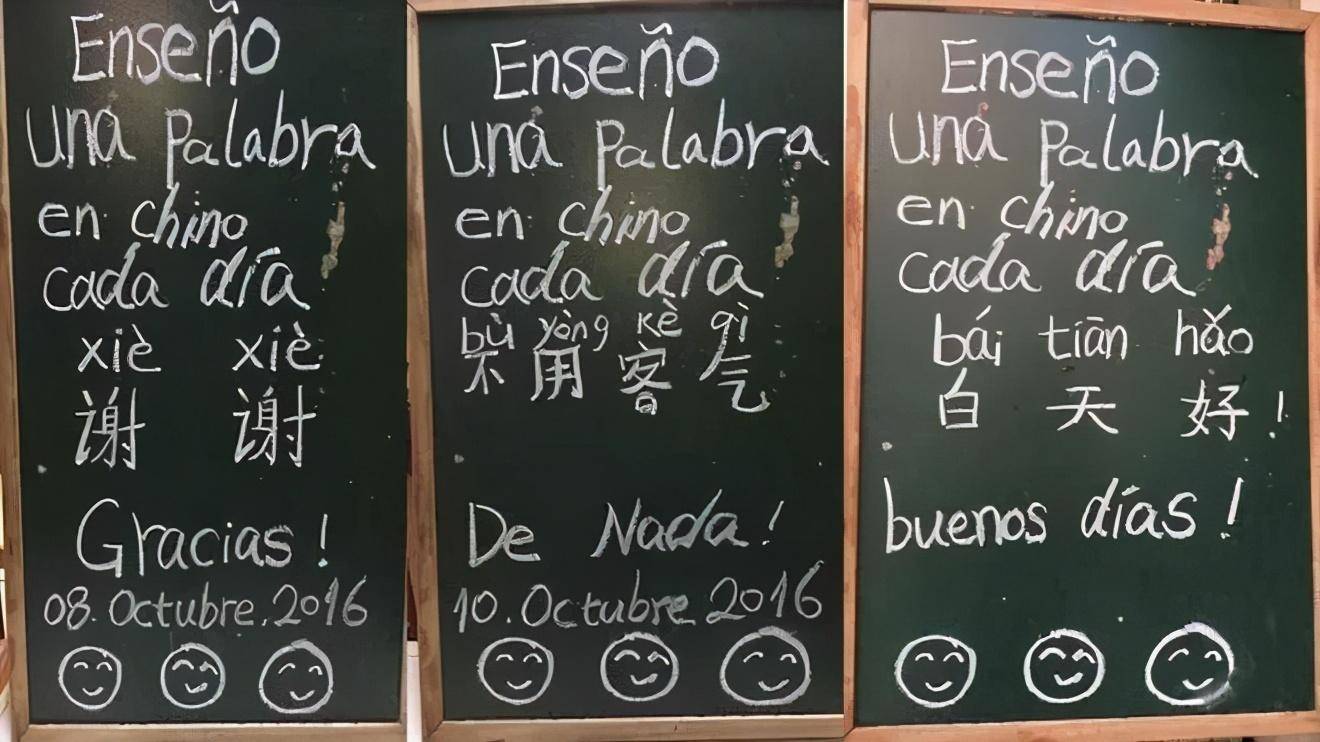 Enseño
una palabra
en chino
cada día
xiè xiè
谢 谢
Gracias!
08.Octubre.2016
Enseño
una palabra
en chino
cada día
bù yòng kè qì
不 用 客 气
De Nada!
10.Octubre 2016
Enseño
una palabra
en chino
cada día
bái tiān hǎo
白 天 好!
buenos días!